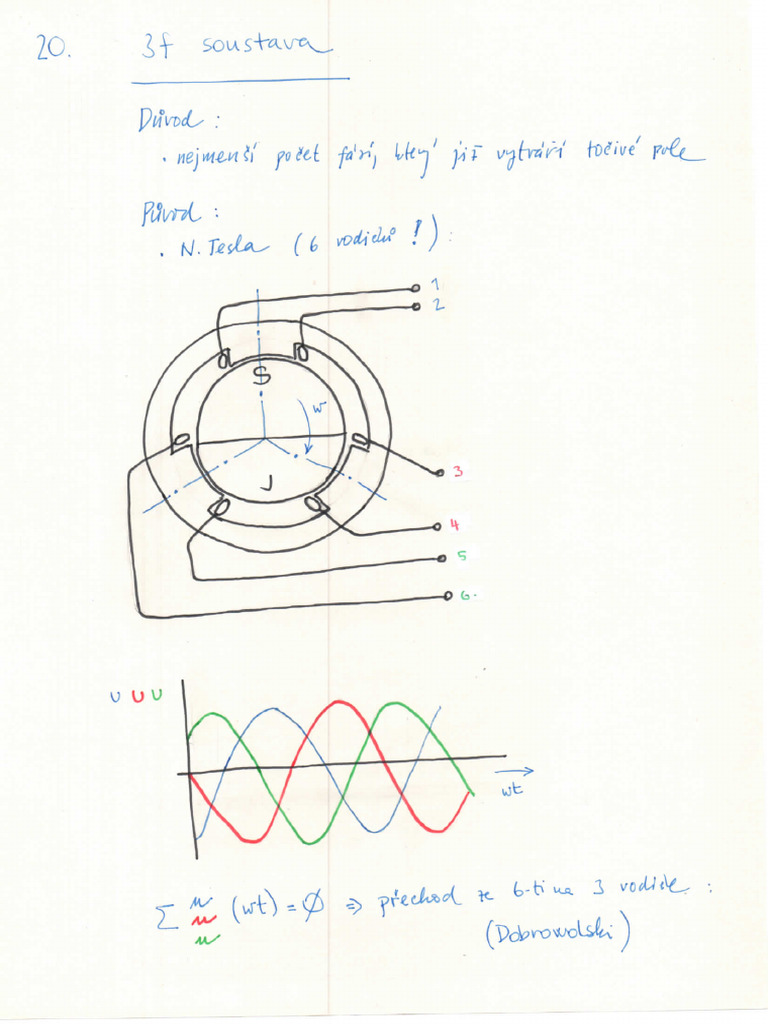 20. 3f soustava
Důvod :
• nejmenší počet fází, který již vytváří točivé pole
Původ :
• N. Tesla (6 vodičů !) :
1
2
S
w
3
J
4
5
6.
U U U
wt
Σ u u u (wt) = ∅ ⇒ přechod ze 6-ti na 3 vodiče :
(Dobrowolski)